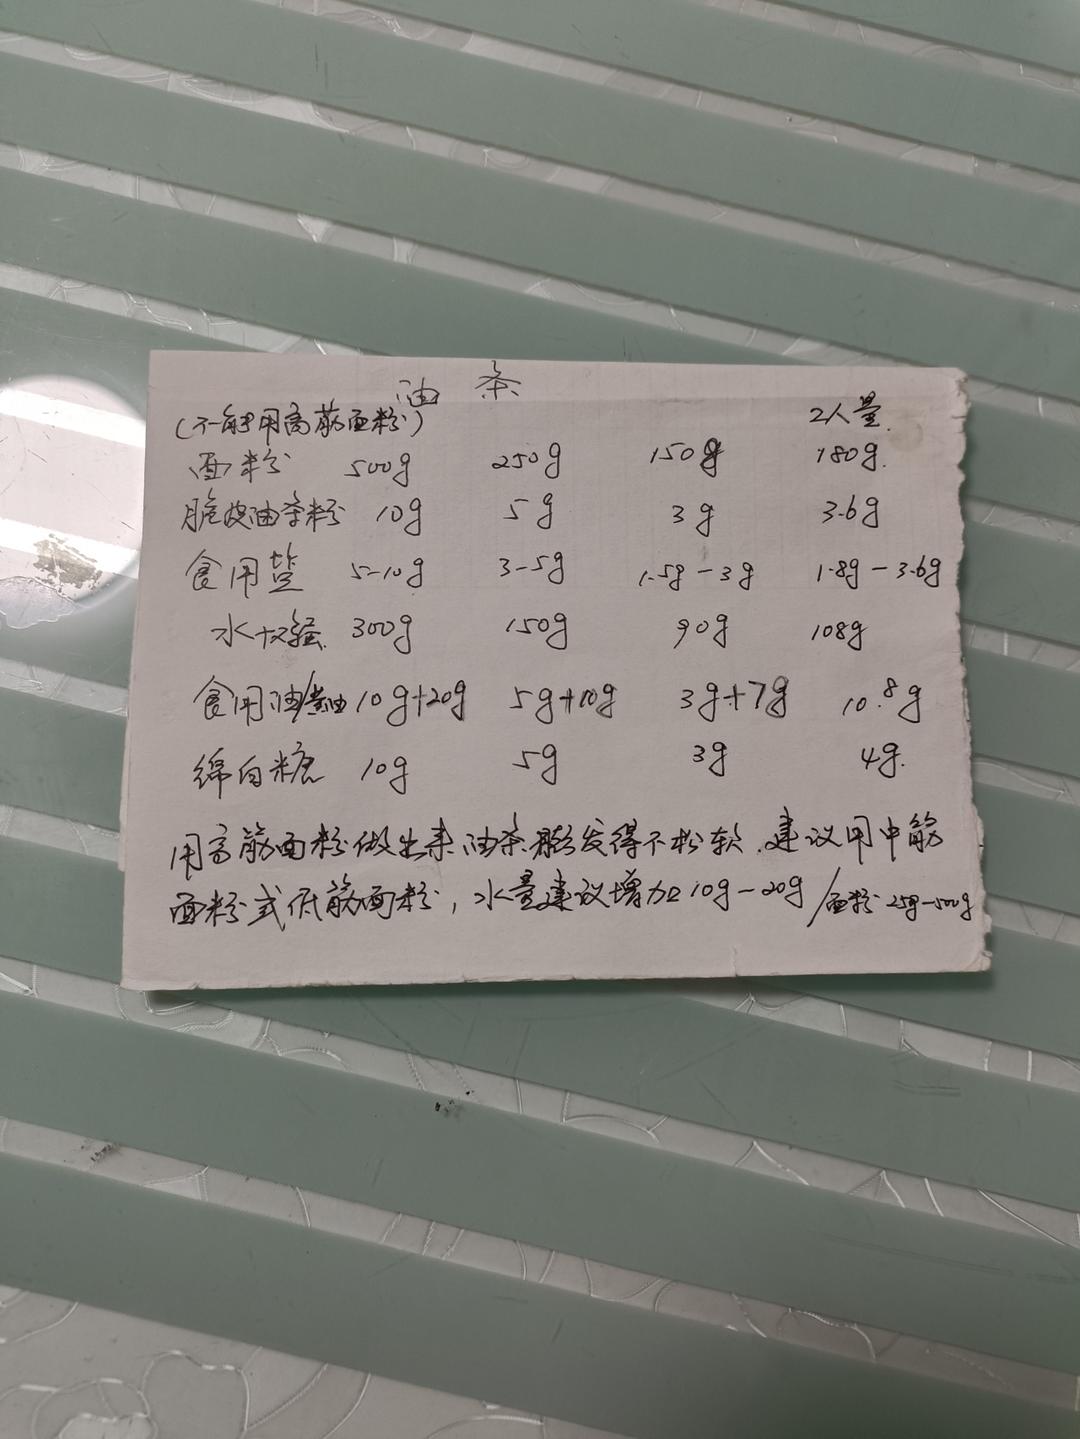 油条
(不能用高筋面粉) 2人量.
面粉 500g 250g 150g 180g.
脆皮油条粉 10g 5g 3g 3.6g
食用盐 5-10g 3-5g 1.5g-3g 1.8g-3.6g
水 300g 150g 90g 108g
食用油 10g+20g 5g+10g 3g+7g 10.8g
绵白糖 10g 5g 3g 4g.
用高筋面粉做出来油条膨发得不松软.建议用中筋
面粉或低筋面粉,水量建议增加10g-20g/面粉